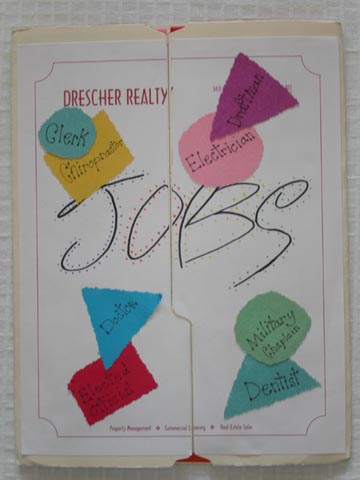 DRESCHER REALTY
Clerk
Chiropractor
Draftman
Electrician
JOBS
Doctor
Elected
Official
Military
Chaplain
Dentist
Property Management ❖ Commercial Leasing ❖ Real Estate Sales